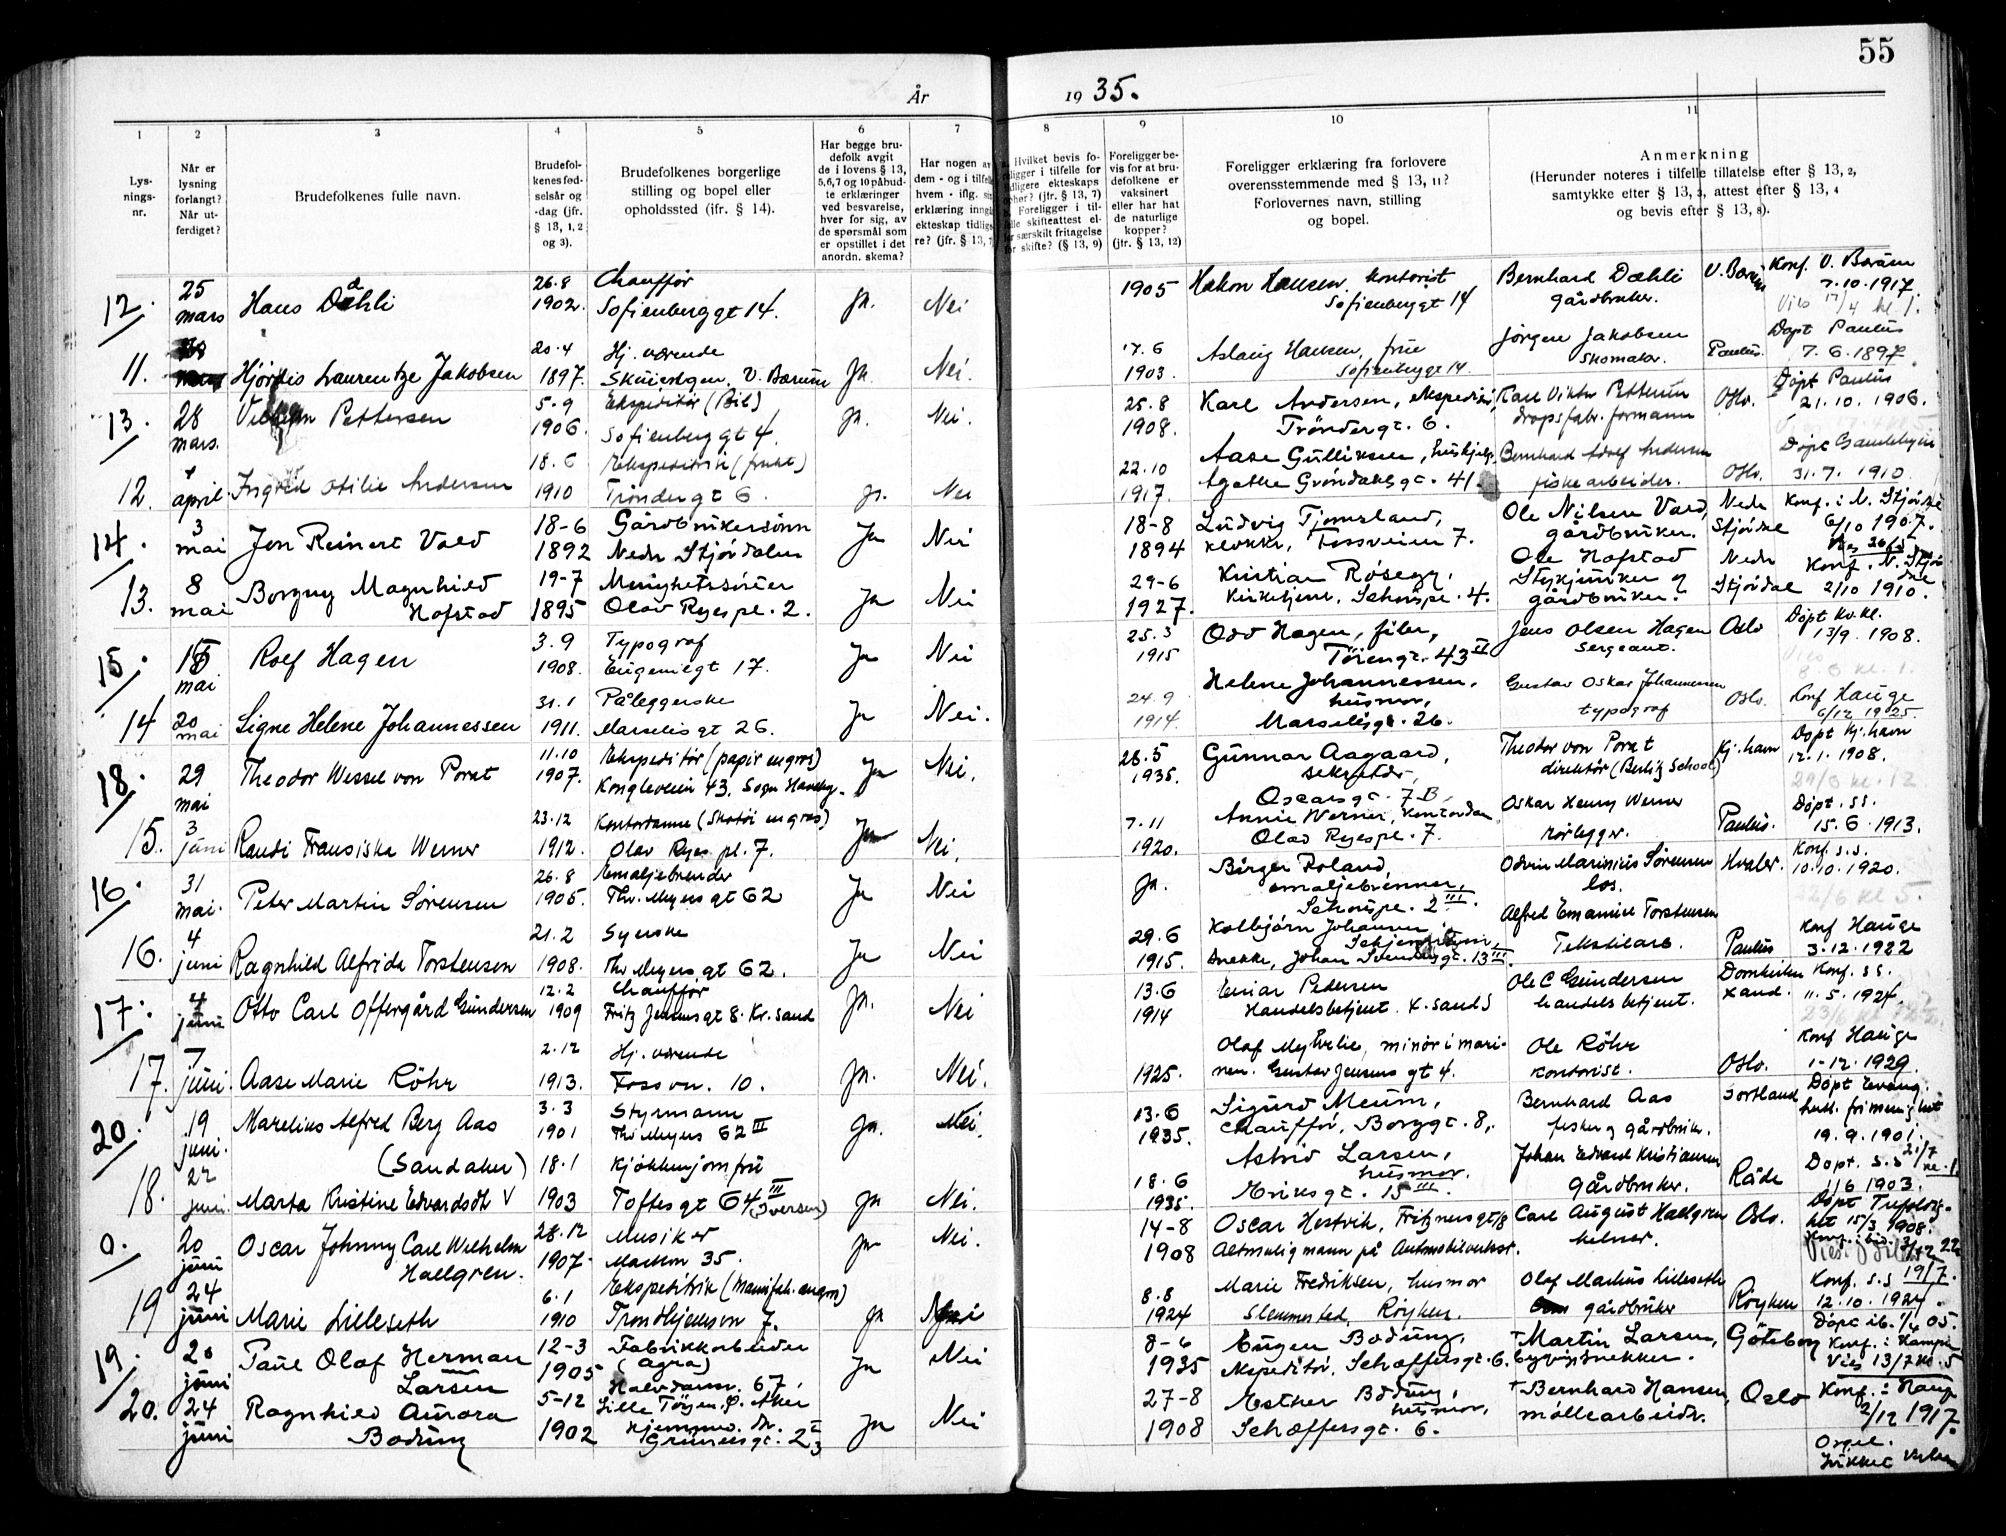 55
År 1935.
1 2 3 4 5 6 7 8 9 10 11
Lys-
nings-
nr.
Når er
lysning
forlangt?
Når ut-
ferdiget?
Brudefolkenes fulle navn.
Brudefol-
kenes fød-
selsår og
-dag (jfr.
§ 13, 1, 2
og 3).
Brudefolkenes borgerlige
stilling og bopel eller
opholdssted (ifr. § 14).
Har begge bru-
defolk avgit
de i lovens § 13,
5,6,7 og 10 påbud-
te erklæringer
ved besvarelse,
hver for sig, av
de spørsmål som
er opstillet i det
anordn. skema?
Har nogen av
dem - og i tilfelle
hvem - iflg. sin
erklæring inngått
ekteskap tidlige-
re? (jfr. § 13, 7)
Hvilket bevis fo-
religger i tilfelle for
tidligere ekteskaps
ophør? (jfr. § 13, 7)
Foreligger i til-
felle skifteattest el-
ler særskilt fritagelse
for skifte? (§ 13, 9)
Foreligger be-
vis for at bru-
defolkene er
vaksinert
eller har hat
de naturlige
kopper?
(jtr. § 13, 12)
Foreligger erklæring fra forlovere
overensstemmende med § 13, 11?
Forlovernes navn, stilling
og bopel.
Anmerkning
(Herunder noteres i tilfelle tillatelse efter § 13, 2,
samtykke efter § 13, 3, attest efter § 13, 4
og bevis efter § 13, 8).
12. 25 mars Hans Dæhli 26.8 1902. Chauffør Sofienberggt 14. Ja. Nei 1905 Håkon Hansen, kontorist Sofienberggt 14 Bernhard Dæhli gårdbruker. V. Bærum Konf. V. Bærum 7.10.1917. Vies 17/4 kl 1.
11. Hjørdis Laurentze Jakobsen 20.4 1897. Hj. værende V. Bærum Ja. Nei. 17.6 1903. Aslaug Hansen, frue Sofienberggt 14. Jørgen Jakobsen skomaker. Paulus. Døpt Paulus 7.6.1897.
13. 28 mars. Vilhelm Pettersen 5.9 1906. Ekspeditør (Bil) Sofienberggt 4. Ja. Nei. 25.8 1908. Karl Andersen, ekspeditør, Trøndergt. 6. Karl Viktor Pettersen dropsfabr. formann Oslo. Døpt Paulus 21.10.1906.
12. 4 april Ingrid Otilie Andersen 18.6 1910 Ekspeditrise (frukt) Trøndergt 6. Ja. Nei 22.10 1917. Aase Gulliksen, Agathe Grøndahlsgt. 41. Bernhard Adolf Andersen fiskearbeider. Oslo. Døpt Gamlebyen 31.7.1910
14. 3 mai Jon Reinert Vold 18-6 1892 Gårdbrukersønn Nedre Stjørdalen Ja Nei 18-8 1894 Ludvig Tjomsland, klokker, Fossveien 7. Ole Nilsen Vold, gårdbruker. Nedre Stjørdal Konf. i N. Stjørdal 6/10 1907. Vies 26/5
13. 8 mai Borgny Magnhild Hofstad 19-7 1895 Menighetssøster Olav Ryespl. 2. Ja Nei 29-6 1927. Kristian Røsegg, kirketjener, Schouspl. 4. Ole Hofstad Stykjunker og gårdbruker. Nedre Stjørdal Konf. N. Stjørdal 2/10 1910.
15. 15 mai Rolf Hagen 3.9 1908. Typograf Eugeniegt 17. Ja Nei 25.3 1915 Odd Hagen, filer, Tøiengt. 43 IV Jens Olsen Hagen sergeant. Oslo Døpt kv.kl. 13/9. 1908. Vies 8.6 kl. 1.
14 20 mai Signe Helene Johannessen 31.1 1911. Påleggerske Marselisgt 26. Ja Nei. 24.9 1914. Helene Johannessen, husmor, Marselisgt. 26. Gustav Oskar Johannessen typograf Oslo. Konf Hauge 6/12 1925.
18. 29 mai Theodor Wessel von Porat 11.10 1907. Ekspeditør (papir engros) Kongleveien 43, Sogn Haveby. Ja Nei. 28.5 1935. Gunnar Aagaard, sekretær, Oscarsgt. 7 B. Theodor von Porat direktør (Berlitz School) Kj.havn Døpt Kj.havn 12.1.1908. 29/6 kl. 12
15. 3 juni Randi Fransiska Werner 23.12 1912. Kontordame (Skotøi engros) Olav Ryes pl. 7. Ja Nei. 7.11 1920. Annie Werner, kontordame Olav Ryespl. 7. Oskar Henry Werner rørlegger. Paulus. Døpt. s.s. 15.6.1913.
16. 31 mai. Peter Martin Sørensen 26.8 1905. Emaljebrender Thv. Meyersgt 62 Ja Nei Ja. Birger Roland, emaljebrenner, Schouspl. 2 III. Odvin Marinius Sørensen los. Hvaler. Konf. s.s. 10.10.1920. 22/6 kl 5.
16. 4 juni Ragnhild Alfrida Torstensen 21.2 1908. Syerske Thv Meyersgt 62. Ja Nei 29.6 1915. Kolbjørn Johannes snekker, Johan Svendsensgt. 13 III. Alfred Emanuel Torstensen Tekstilarb. Paulus Konf Hauge 3.12.1922
17. 4 juni Otto Carl Offergård Gundersen 12.2 1909 Chauffør Fritz Jensensgt 8. Kr.sand Ja. Nei 13.6 1914 Einar Pedersen Handelsbetjent. K.sand S Ole C Gundersen handelsbetjent. Domkirken K.sand. Konf. s.s. 11.5.1924.
17. 7 juni. Aase Marie Røhr 2.12 1913. Hj. værende Fossvn. 10. Ja. Nei. 1925. Olaf Myhrlie, minør i marinen. Gustav Jensensgt 4. Ole Røhr kontorist. Oslo. Konf Hauge 1-12.1929.
20. 19 juni. Marelius Alfred Berg Aas (Sandaker) 3.3 1901 Styrmann Thv Meyers 62 III Ja. Nei. 13.6 1935. Sigurd Meum, chauffør, Borggt. 8. Bernhard Aas fisker og gårdbruker. Sortland Døpt Evang. luth. frimenighet 19.9.1901. 21/7 kl. 1.
18. 22 juni. Marta Kristine Edvardsdtr V 18.1 1903 Kjøkkenjomfru Toftesgt 64 III (Iversen) Ja Nei. 18.6 1935. Astrid Larsen, husmor. Eriksgt. 15 III. Johan Edvard Kristiansen gårdbruker. Råde Døpt. s.s 1/6 1903.
0. 20 juni Oscar Johnny Carl Wilhelm Hallgren. 28.12 1907. Musiker Markvn 35. Ja Nei. 14-8 1908 Oscar Hestvik, Fritznersgt/8 Altmuligmann på Automobilverkst. Carl August Hallgren kelner. Oslo. 15/3 1908.
19 24 juni Marie Lilleseth 6.1 1910 Ekspeditrise (Manufak. engros) Trondhjemsvn 7. Ja Nei 8.8 1924 Marie Fredriksen, husmor Slemmestad, Røyken. Olaf Markus Lilleseth gårdbruker Røyken Konf. s.s 12.10.1924. 19/7.
19. 20 juni Paul Olaf Herman Larsen 12-3 1905 Fabrikkarbeider (Agra) Halvdansv. 67, Lille Tøyen, Ø. Aker Ja Nei 8-6 1935 Eugen Bodung, ekspeditør, Schæffersgt. 6. † Martin Larsen, bygningssnekker. Göteborg Døpt ib. 1/4 05. Konf. i Kampen Vies 13/7 kl. 5
20. 24 juni Ragnhild Aurora Bodung 5-12 1902 Hjemmev. dtr. Grünersgt. 2 Ja Nei 27-8 1908 Esther Bodung, husmor, Schæffersgt. 6. † Bernhard Hansen, møllearbeider. Oslo Konf. i Kamp. 2/12 1917.